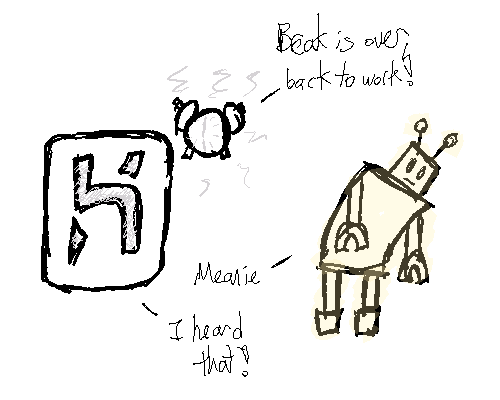 Beak is over,
back to work!
Mearie
I heard
that!